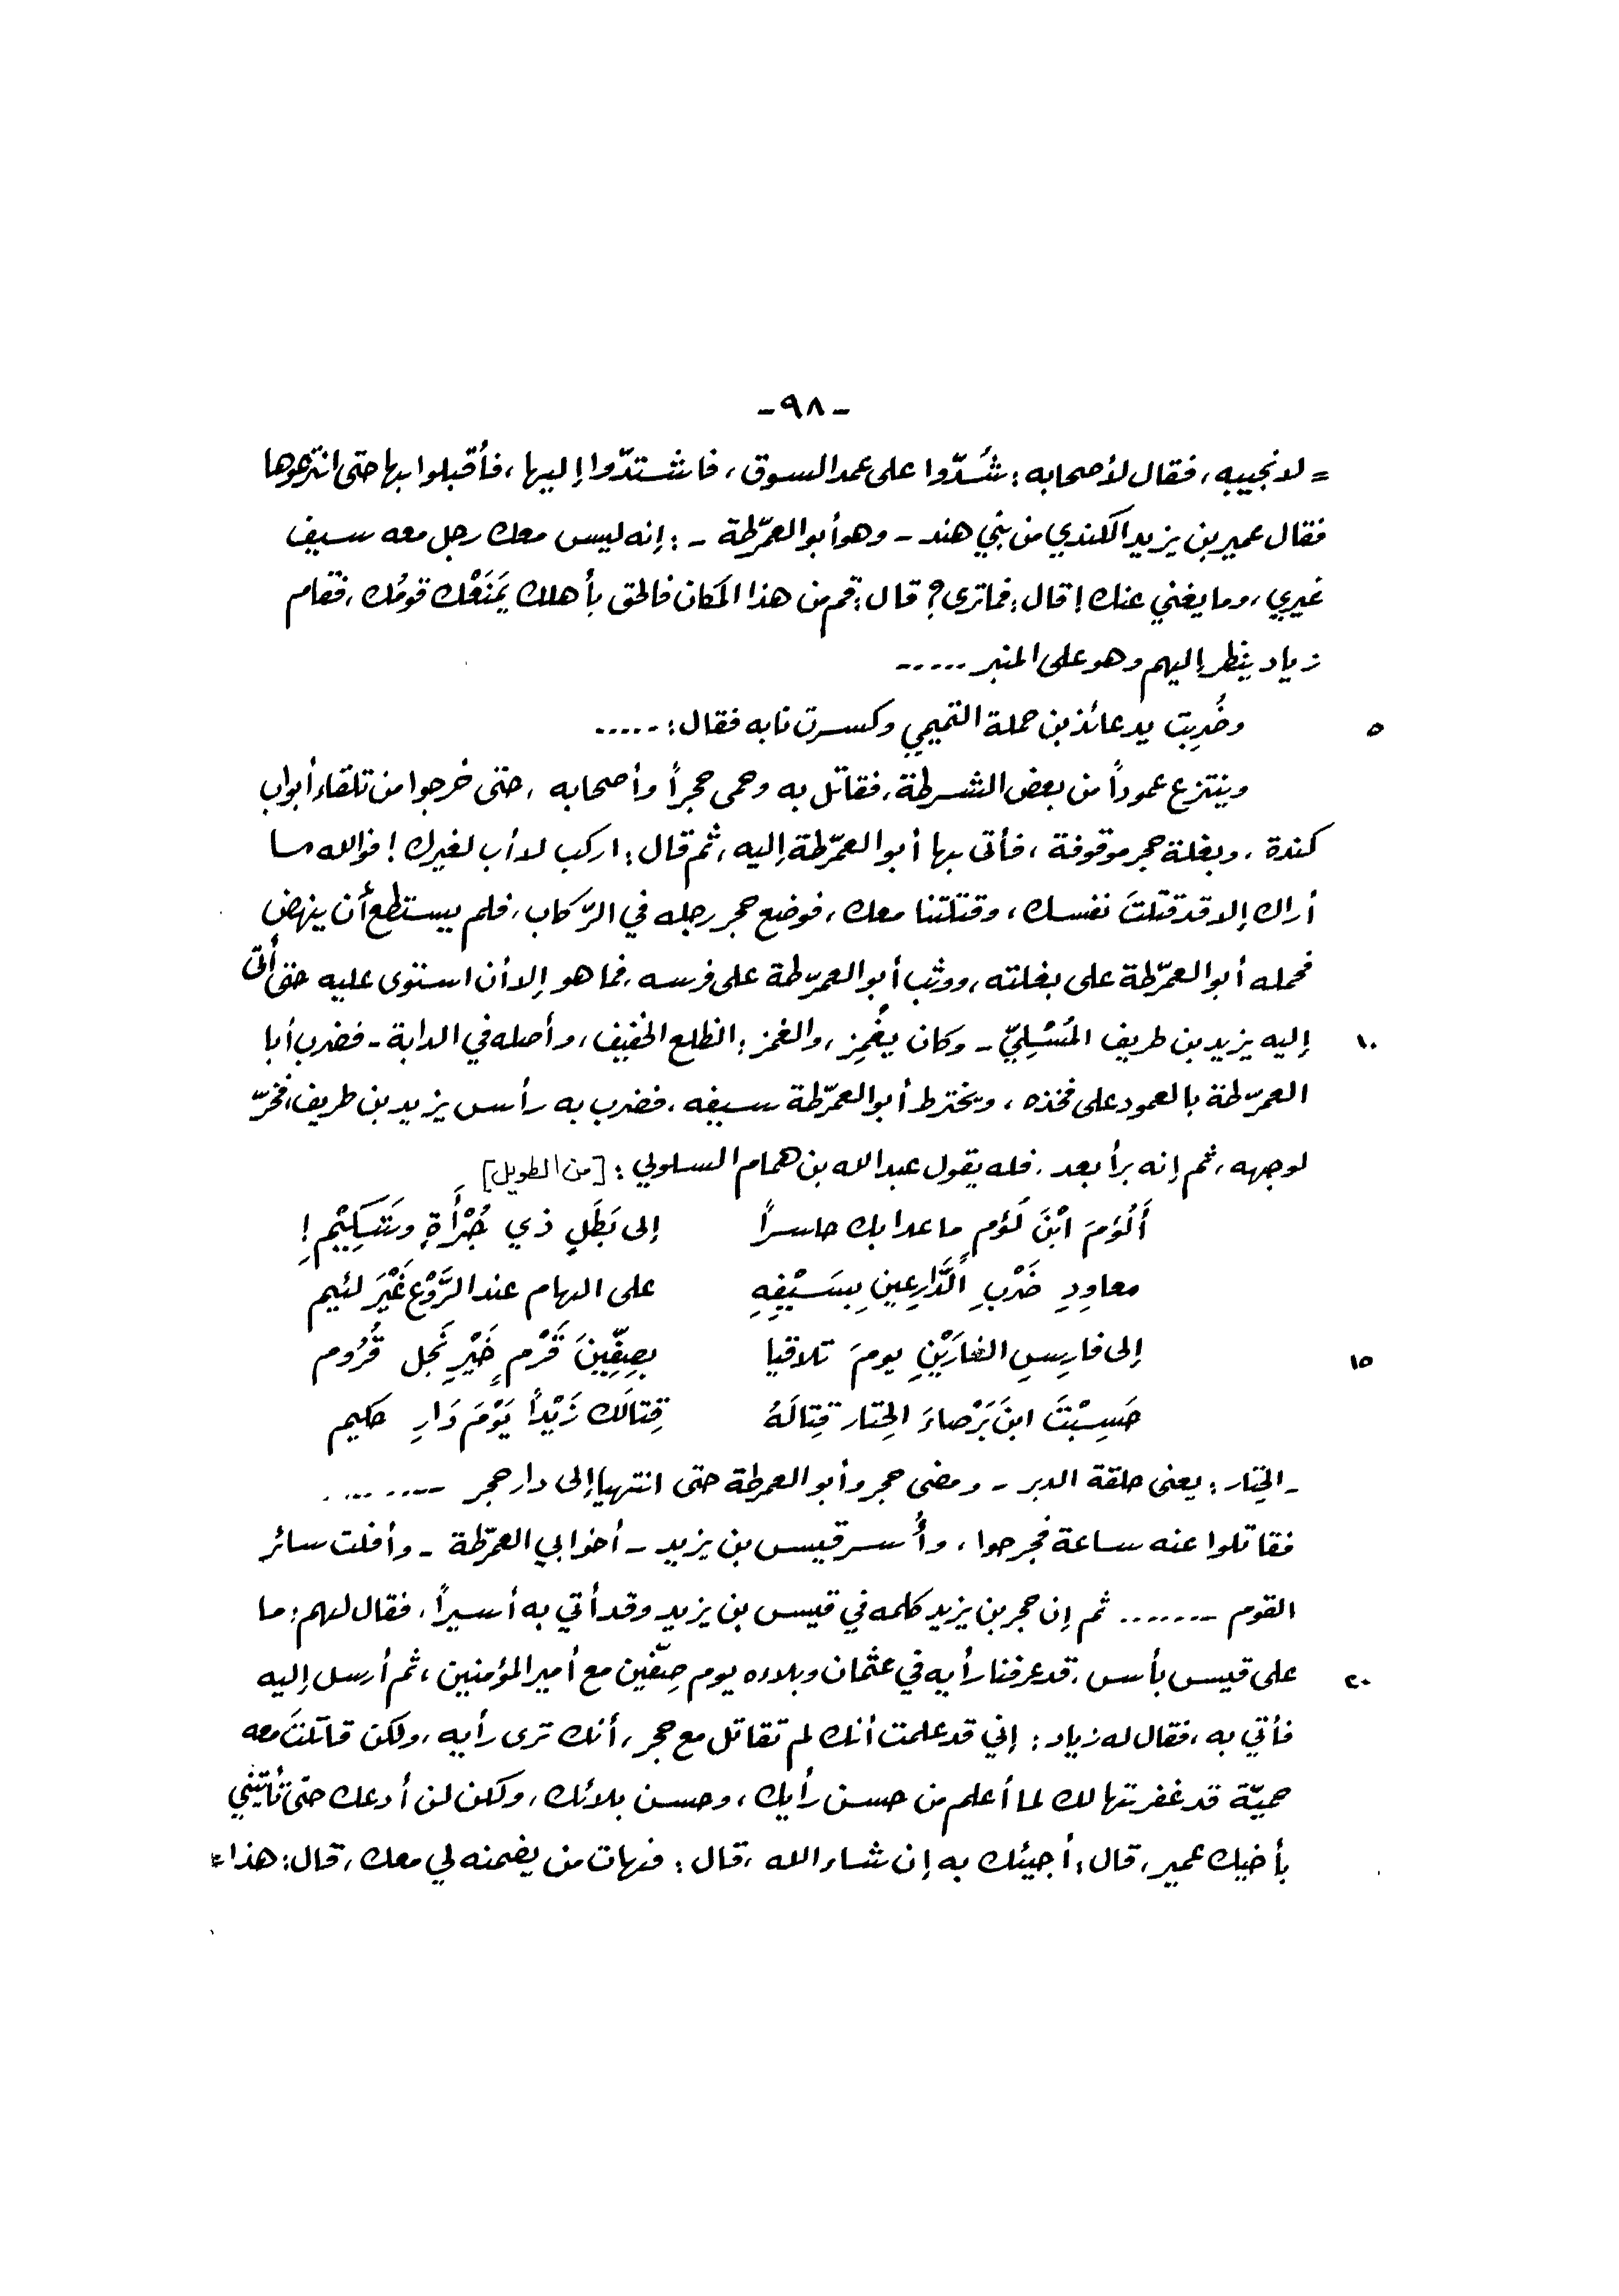 -٩٨-
= لا نجيبه، فقال لأصحابه: شُدّوا على عمد السوق، فاشتدّوا إليها، فأقبلوا بها حتى انتزعوها
فقال عمير بن يزيد الكندي من بني هند - وهو أبو العمرّطة -: إنه ليس معك رجل معه سيف
غيري، وما يغني عنك! قال: فما ترى؟ قال: قم من هذا المكان فالحق بأهلك يَمْنَعْك قومُك، فقام
زياد ينظر إليهم وهو على المنبر .....
٥ وضُرِبت يد عائذ بن حملة التميمي وكسرت نابه فقال: .....
وينتزع عموداً من بعض الشرطة، فقاتل به وحمى حجراً وأصحابه، حتى خرجوا من تلقاء أبواب
كندة، وبغلة حجر موقوفة، فأتى بها أبو العمرّطة إليه، ثم قال: اركب لا أب لغيرك! فوالله ما
أراك إلا قد قتلتَ نفسك، وقتلتنا معك، فوضع حجر رجله في الرّكاب، فلم يستطع أن ينهض
فحمله أبو العمرّطة على بغلته، ووثب أبو العمرّطة على فرسه، فما هو إلا أن استوى عليه حتى أتى
١٠ إليه يزيد بن طريف المُسْلِيّ - وكان يغمِز، والغمز: الظلع الخفيف، وأصله في الدابة - فضرب أبا
العمرّطة بالعمود على فخذه، ويخترط أبو العمرّطة سيفه، فضرب به رأس يزيد بن طريف، فخرّ
لوجهه، ثم إنه برأ بعد. فله يقول عبد الله بن همام السلولي: [من الطويل]
أَلُؤمَ ابْنَ لُؤمٍ ما عدا بك حاسراً إلى بَطَلٍ ذي جُرْأَةٍ وشَكِيْمِ!
معاوِدِ ضَرْبِ الدَّارِعِينِ بِسَيْفِهِ على الهام عند الرَّوْعِ غَيْرَ لئيم
١٥ إلى فارِسِ الغارَيْنِ يومَ تلاقيا بصِفِّينَ قَرْمٍ خَيْرِ نَجْل قُرُوم
حَسِبْتَ ابنَ بَرْصاءَ الحِتار قِتالَهُ قِتالَك زَيْداً يَوْمَ دَارِ حكيم
- الحِتار: يعني حلقة الدبر - ومضى حجر وأبو العمرطة حتى انتهيا إلى دار حجر .........
فقاتلوا عنه ساعة فجرحوا، وأُسر قيس بن يزيد - أخو ابي العمرّطة - وأفلت سائر
القوم ....... ثم إن حجر بن يزيد كلمه في قيس بن يزيد وقد أتي به أسيراً، فقال لهم: ما
٢٠ على قيس بأس، قد عرفنا رأيه في عثمان وبلاءه يوم صِفّين مع أمير المؤمنين، ثم أرسل إليه
فأتي به، فقال له زياد: إني قد علمت أنك لم تقاتل مع حجر، أنك ترى رأيه، ولكن قاتلتَ معه
حميّة قد غفرتها لك لما أعلم من حسن رأيك، وحسن بلائك، ولكن لن أدعك حتى تأتيني
بأخيك عمير، قال: أجيئك به إن شاء الله، قال: فهات من يضمنه لي معك، قال: هذا =